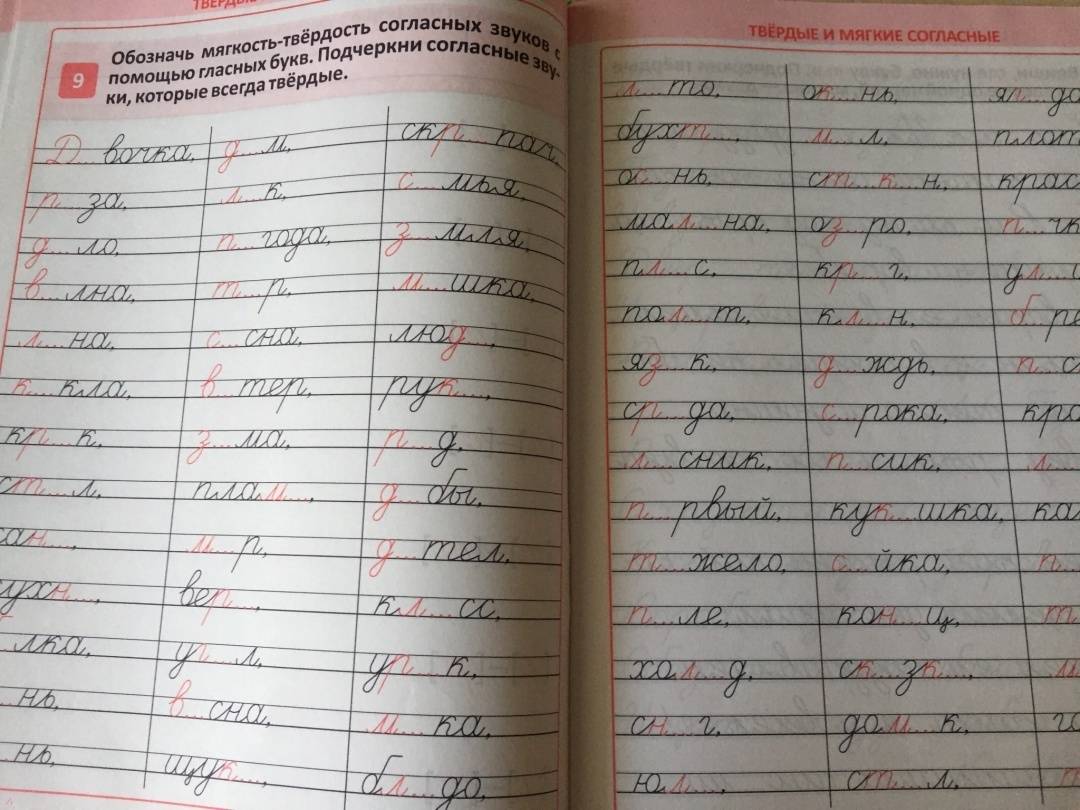 ТВЁРДЫЕ
9
Обозначь мягкость-твёрдость согласных звуков с
помощью гласных букв. Подчеркни согласные зву-
ки, которые всегда твёрдые.
Д...вочка, д...м, скр...пач,
р...за, л...к, с...мья,
д...ло, п...года, з...мля,
в...лна, т...р, м...шка,
л...на, с...сна, люд...,
к...кла, в...тер, рук...,
кр...к, з...ма, р...д,
ст...л, плам..., д...бы,
сан..., м...р, д...тел,
кухн..., вер..., кл...сс,
лка, уг...л, ур...к,
нь, в...сна, м...ка,
нь, щук..., бл...до,
ТВЁРДЫЕ И МЯГКИЕ СОГЛАСНЫЕ
л...то, ок...нь, яг...до
бухт..., м...л, плот
ос...нь, ст...к...н, крас
мал...на, оз...ро, п...чк
пл...с, кр...г, ул...
пал...т, кл...н, б...ре
яз...к, д...ждь, п...с
ср...да, с...рока, кра
л...сник, п...сик, л...
п...рвый, кук...шка, ка
т...жело, с...йка, п...
п...ле, кон...ц, т
хол...д, ск...зк..., м
сн...г, дом...к, го
юл..., ст...л,